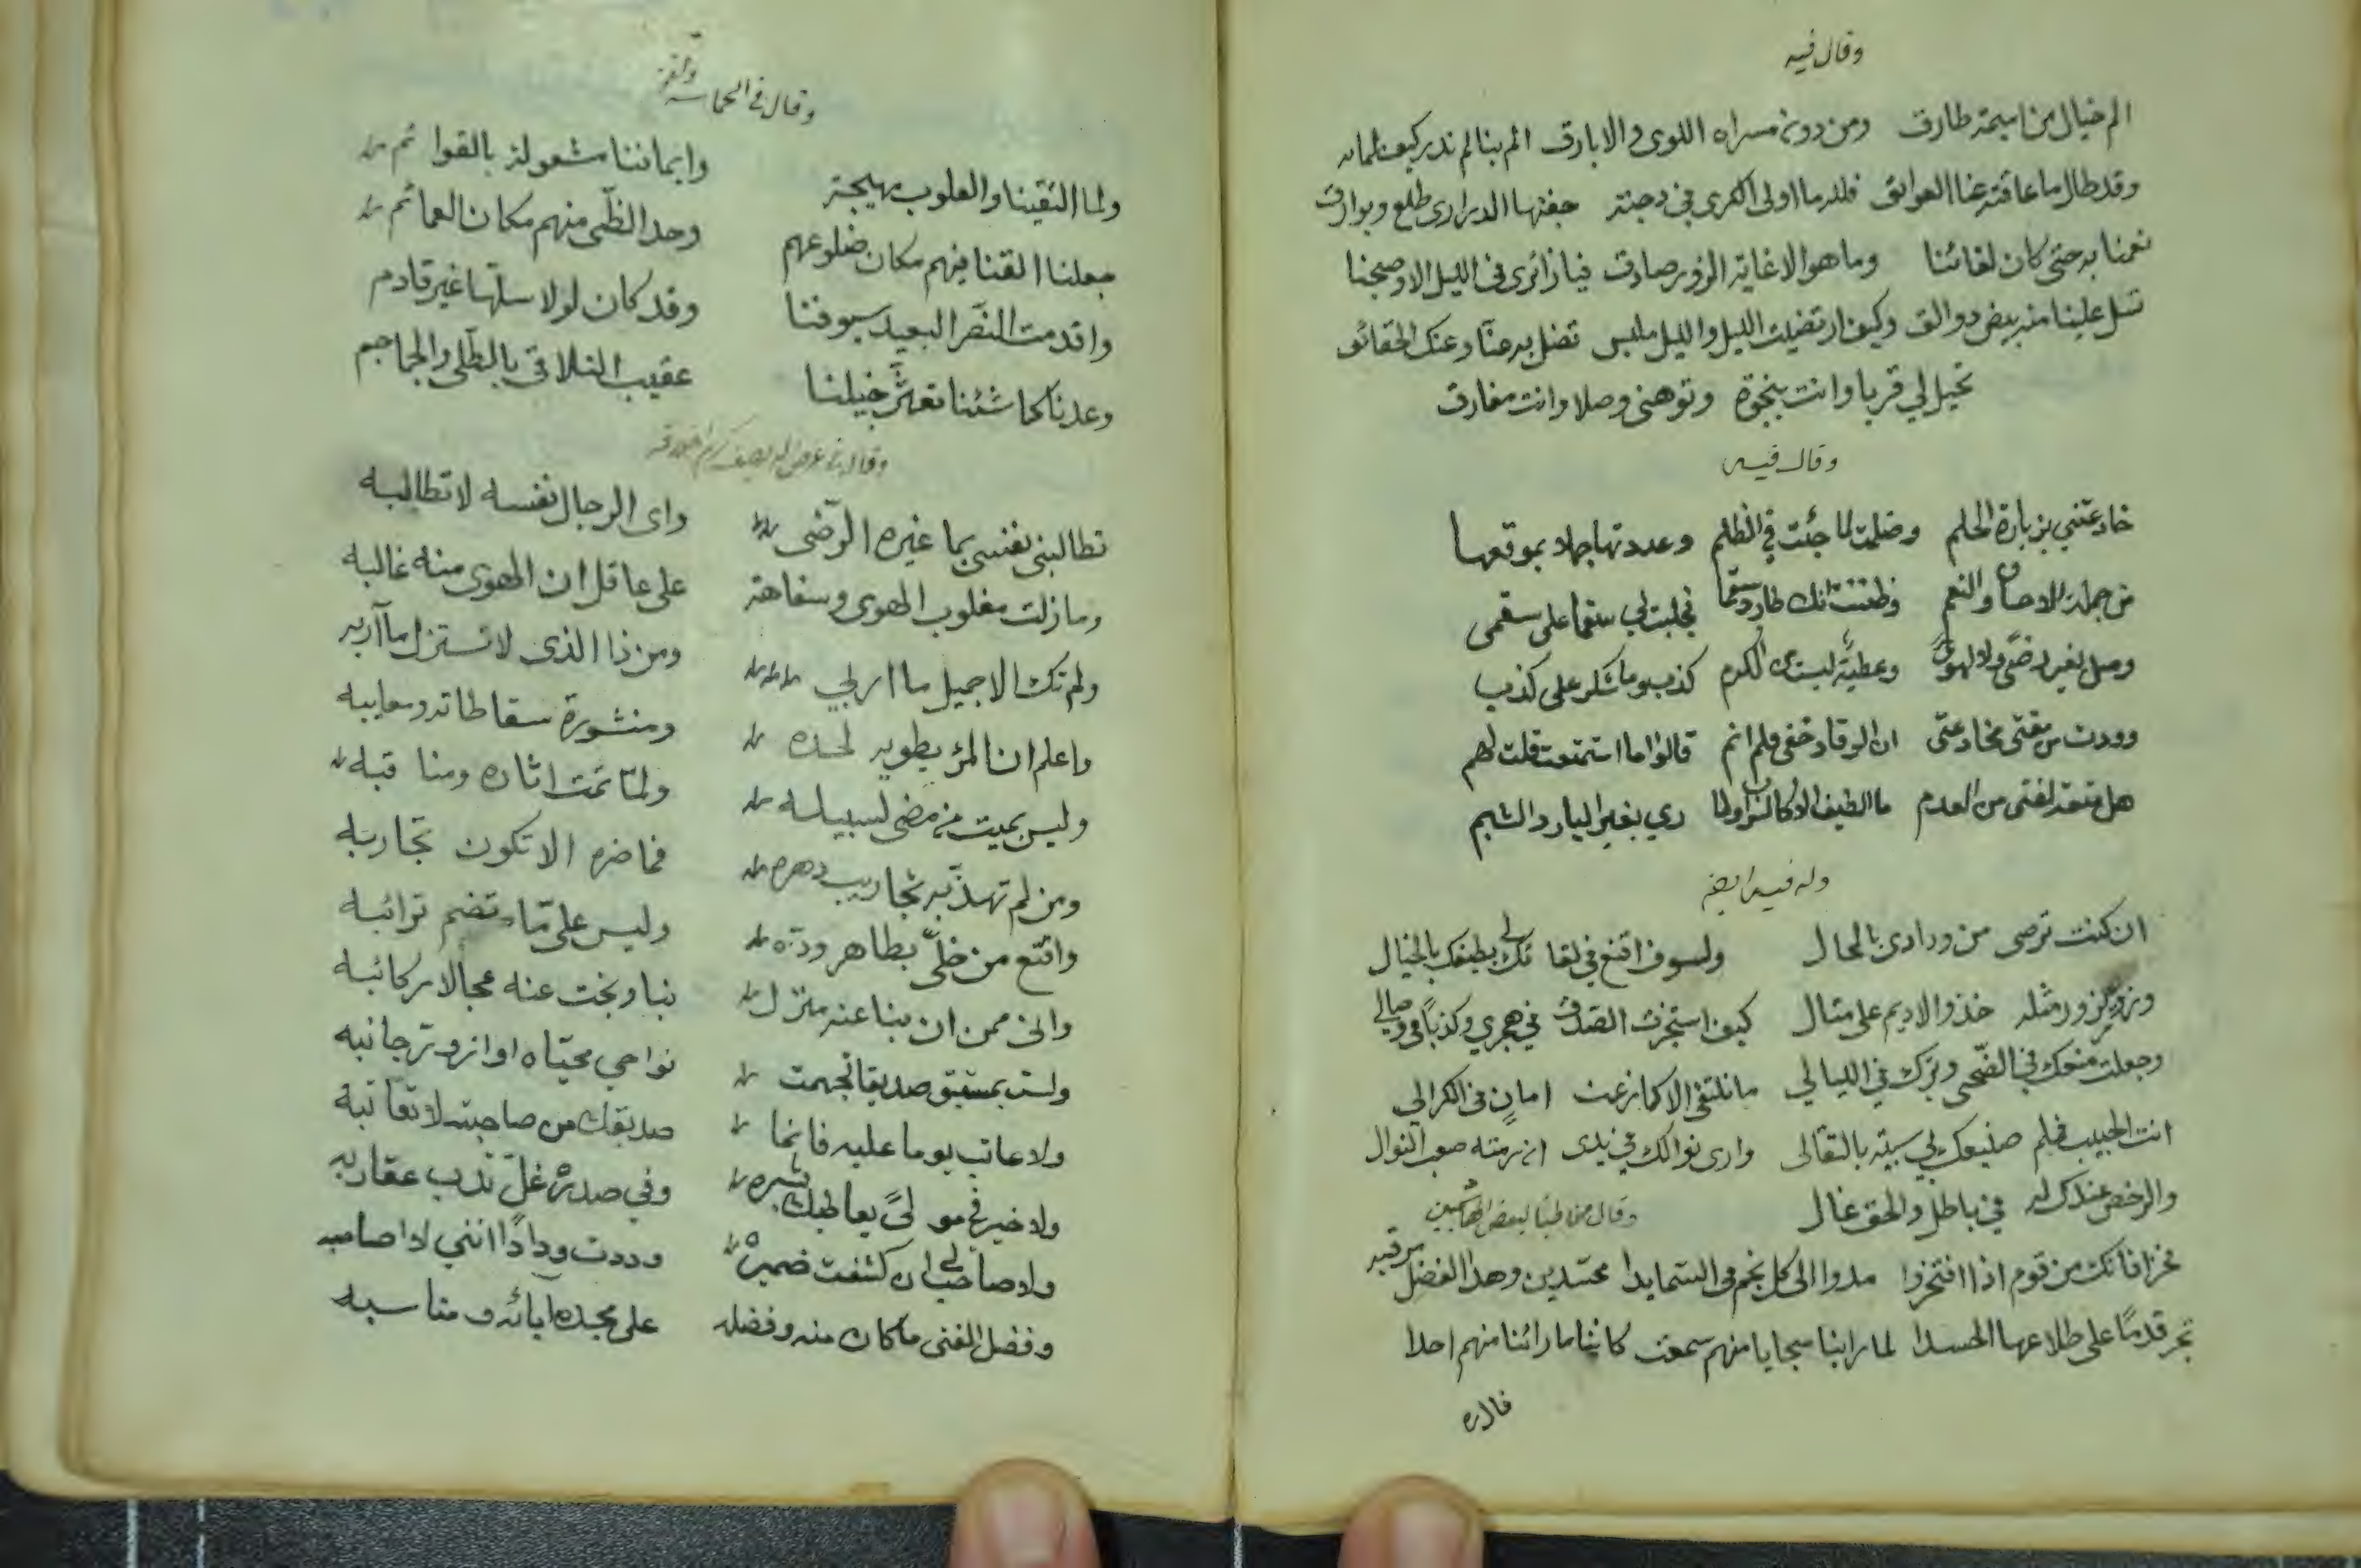 وقال فيه
الم خيال من اميمة طارق ومن دونه مسراه اللوى والابارق الم بنا لم ندر كيف لمامه
وقد طال ما عاقته عنا العوائق فلله ما اولى الكرى في دجنة جفتها الدراري طلع وبوارق
نعمنا به حتى كان لقائنا وما هو الا غاية الزور صادق فيا زائرى فى الليل الا وصبحنا
تسل علينا منه بيض ذوالق وكيف ارتضيت الليل والليل ملبس تضل به عنا وعنك الحقائق
تخيل لي قربا وانت بنجوة وتوهمنى وصلا وانت مفارق
وقال فيه
خادعتني بزيارة الحلم وضللت لما جئت في الظلم وعددتها جهلا بموقعها
من جملة الاحسان والنعم وظننت انك طارد سقما فجلبت لي سقما على سقمى
وصل بغير رضى ولا لهوى وعطية ليست من الكرم كذب وما شكر على كذب
ووددت من مقتى مخادعتى ان الرقاد خفى فلم انم قالوا اما استمتعت قلت لهم
هل متعة لفتى من العدم ما الطيف الا كالسراب ولما ري بغير البارد الشبم
وله فيه ايضا
ان كنت ترضى من ودادى بالمحال ولسوف اقنع في لقائك لي بطيفك بالخيال
وتزور زور مثله حذو الاديم على مثال كيف استجزت الصدق في هجري وكذبا في وصالي
وجعلت منعك في الضحى وبذلك في الليالي ما نلتقى الا كما زعمت امان فى الكرا لي
انت الحبيب فلم صنيعك بي سيئه بالتقالى وارى نوالك في يدى ان رمته صعب النوال
والرخص عندك له في باطل والحق غال وقال مخاطبا لبعض الهاشميين
فخرا فانك من قوم اذا افتخروا مدوا الى كل نجم فى السماء يدا محسدين وهذا الفضل مرقبه
تجر قدما على طلاعها الحسدا لما راينا سجايا منهم سمعت كاننا ما رائنا منهم احدا
وقال في الحماسة والفخر
ولما التقينا والقلوب مهيجة وايماننا مشغولة بالقوائم
جعلنا القنا فيهم مكان ضلوعهم وحد الظبى منهم مكان العمائم
واقدمت النصر البعيد سيوفنا وقد كان لولا سلها غير قادم
وعدنا كما شئنا تعثر خيلنا عقيب التلاقي بالطلى والجماجم
تطالبنى نفسى بما غيره الرضى واى الرجال نفسه لا تطالبه
وما زلت مغلوب الهوى وسفاهة على عاقل ان الهوى منه غالبه
ولم تك الا جميل ماربي ومن ذا الذى لا تستزل مآربه
واعلم ان المرء يطويه لحده ومنشورة سقاطاته ومعايبه
وليس بميت من مضى لسبيله ولما تمت اثاره ومناقبه
ومن لم تهذبه تجاريب دهره فما ضره الا تكون تجاربه
واقنع من خلى بظاهر وده وليس على ما تضم ترائبه
وانى ممن ان نبا عنه منزل نبا ونجت عنه عجالا ركائبه
ولست بمستبق صديقا تجهمت نواحي محياه او ازور جانبه
ولا عاتب يوما عليه فانما صديقك من صاحبته لا تعاتبه
ولا خير في مولى يعاطيك بشره وفي صدره غل تدب عقاربه
ولا صاحب لي ان كشفت ضميره وددت ودادا انني لا اصاحبه
وفضل الفتى ما كان منه وفضله على مجده آبائه ومناسبه